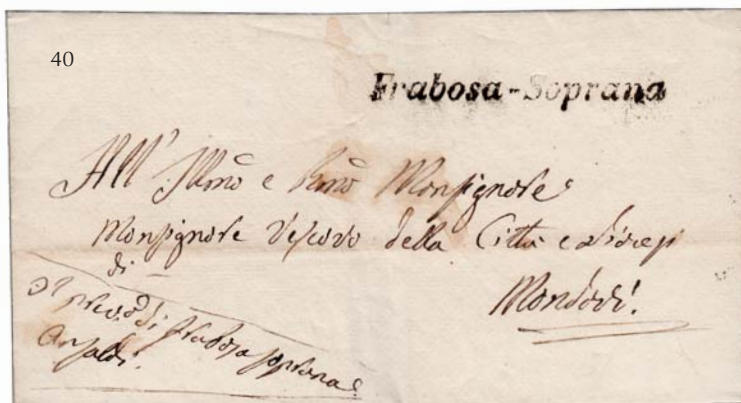 40
Frabosa-Soprana
All' Illmo e Rmo Monsignore
Monsignore Vescovo della Città e Diocesi
di
Mondovì.
di Frabosa soprana